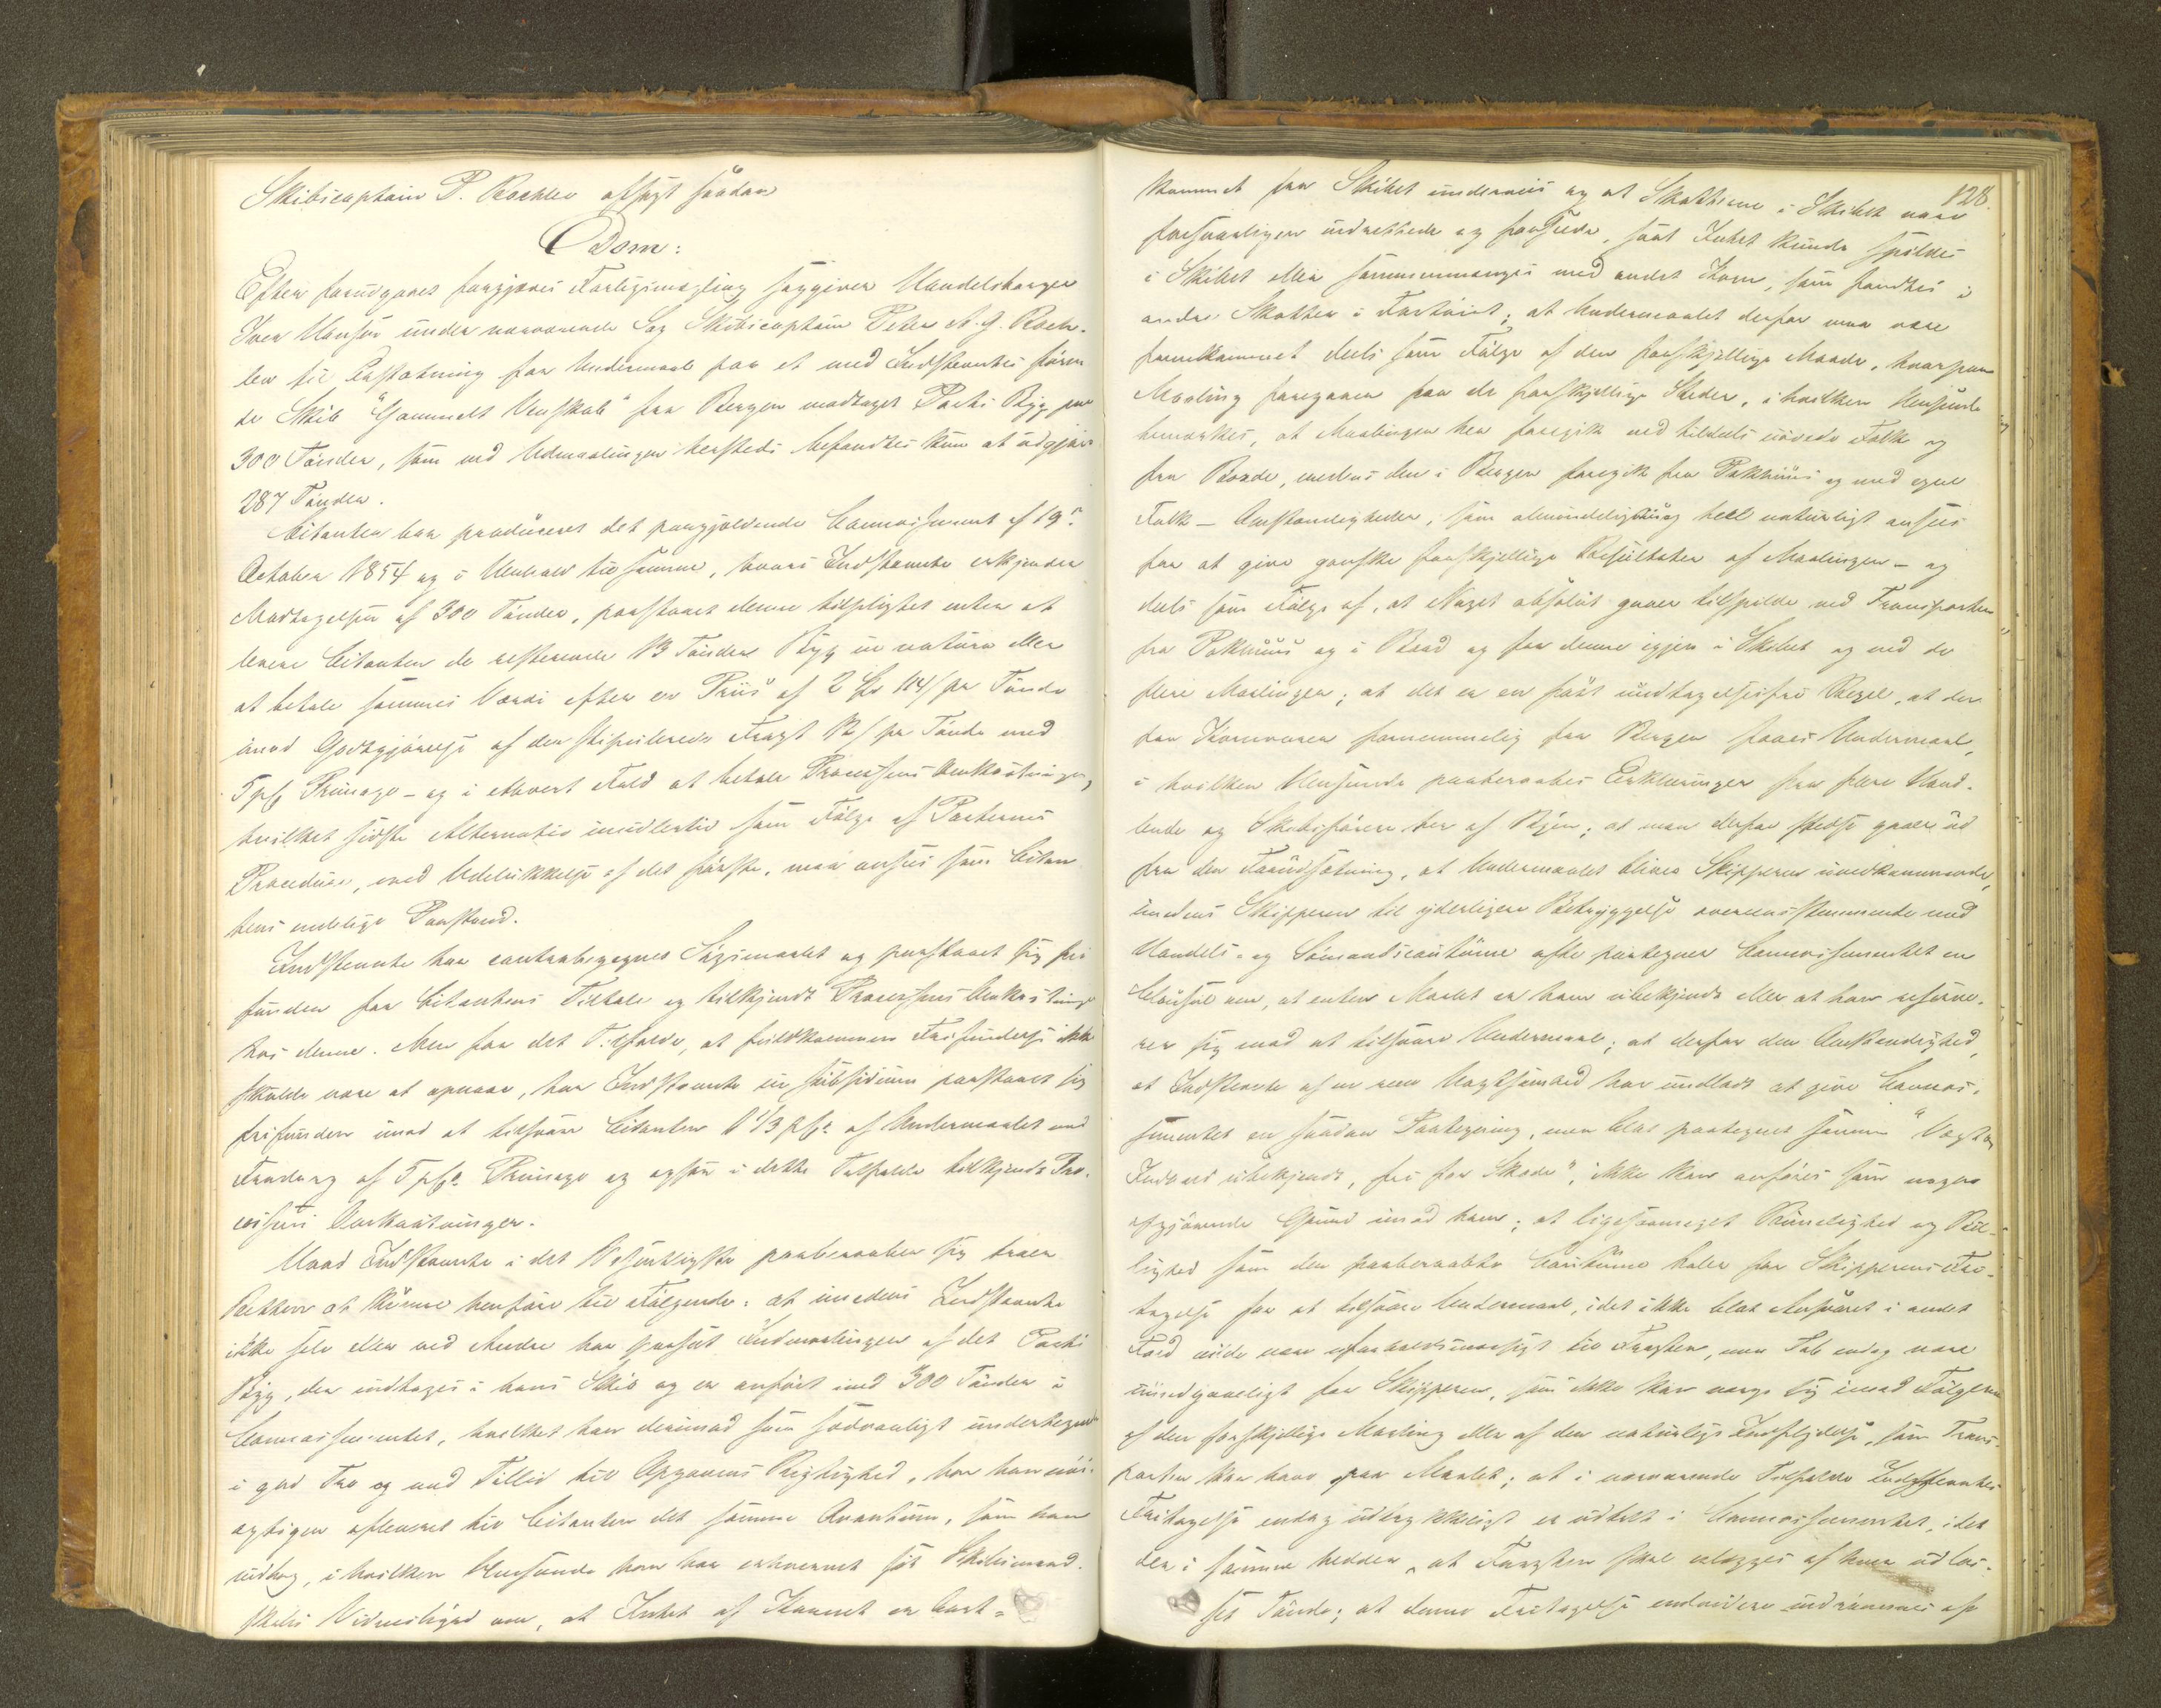 Skibscaptain P. Roehler afsagt saadan
Dom:
Efter forudgaaet forgjæves Forligsmægling sagsøger Handelsborger
Iver Hansen under nærværende Sag Skibscaptain Peter A. G. Roeh-
ler til Erstatning for Undermaal paa et med Indstevntes føren
de Skib "Gammelt Venskab" fra Bergen modtaget Parti Byg paa
300 Tønder, som ved Udmaalingen hersteds befandtes kun at udgjøre
287 Tønder.
Citanten har produceret det paagjældende Connossement af 19de
October 1854 og i Henhold til samme, hvori Indstevnte erkjender
Modtagelsen af 300 Tønder, paastaaet denne tilpligtet enten at
levere Citanten de resterende 13 Tønder Byg in natura eller
at betale sammes Værdi efter en Priis af 2 Spd 114 ß pr Tønde
imod Godtgjørelse af den stipulerede Fragt 12 ß pr Tønde med
5 pCt Primage - og i ethvert Fald at betale Processens Omkostninger,
hvilket sidste Alternativ imidlertid som Følge af Parternes
Procedure, med Udelukkelse af det første, maa ansees som Citan
tens endelige Paastand.
Indstevnte har contrabegegnet Søgsmaalet og paastaaet sig fri
funden for Citantens Tiltale og tilkjendt Processens Omkostninger
hos denne. Men for det Tilfælde, at fuldkommen Frifindelse ikke
skulde være at opnaae, har Indstevnte in subsidium paastaaet sig
frifunden imod at tilsvare Citanten 1 1/3 pCt af Undermaalet med
Fradrag af 5 pCt Primage og ogsaa i dette Tilfælde tilkjendt Pro-
cessens Omkostninger.
Hvad Indstevnte i det Væsentligste paaberaaber sig troer
Retten at kunne henføre til Følgende: at imedens Indstevnte
ikke selv eller ved Andre har paaseet Indmaalingen af det Parti
Byg, der indtoges i hans Skib og er anført med 300 Tønder i
Connossementet, hvilket han derimod som sædvanligt undertegnede
i god Tro og med Tillid til Opgavens Rigtighed, har han nøi-
agtigen afleveret til Citanten det samme Qvantum, som han
indtog, i hvilken Henseende han har erhvervet sit Skibsmand-
skabs Vidnesbyrd om, at Intet af Kornet er bort-
128.
kommet fra Skibet underveis og at Skotterne i Skibet vare
forsvarligen indrettede og forsynede, saa at Intet kunde spildes
i Skibet eller sammenmænges med andet Korn, som fandtes i
andre Skotter i Fartøiet; at Undermaalet derfor maa være
fremkommet deels som Følge af den forskjellige Maade, hvorpaa
Maaling foregaaer paa de forskjellige Steder, i hvilken Henseende
bemærkes, at Maalingen her foregik ved tildeels uøvede Folk og
fra Borde, medens den i Bergen foregik fra Pakhuus og med egne
Folk - Omstændigheder, som almindeligviis og heel naturligt ansees
for at give ganske forskjellige Resultater af Maalingen - og
deels som Følge af, at Noget absolut gaaer tilspilde ved Transporten
fra Pakhuus og i Baad og fra denne igjen i Skibet og ved de
flere Maalinger; at det er en saa at undtagelsesfri Regel, at der
paa Kornvarer fornemmelig fra Bergen faaes Undermaal,
i hvilken Henseende paaberaabes Erklæringer fra flere Hand-
lende og Skibsførere her af Byen; at man derfor stedse gaaer ud
fra den Forudsætning, at Undermaalet bliver Skipperen uvedkommende,
imedens Skipperen til yderligere Betryggelse overensstemmende med
Handels- og Sømandscoutume ofte paategner Connossementet en
Clausul om, at enten Maalet er ham ubekjendt eller at han reserve-
rer sig mod at tilsvare Undermaal; at derfor den Omstændighed,
at Indstevnte af en reen Uagtsomhed har undladt at give Connos-
sementet en saadan Paategning, men blot paategnet samme "Vægt og
Indhold ubekjendt, fri for Skade", ikke kan anføres som nogen
afgjørende Grund imod ham; at ligesaameget Rimelighed og Bil-
lighed som den paaberaabte Coutume taler for Skipperens Fri-
tagelse for at tilsvare Undermaal, idet ikke blot Ansvaret i andet
Fald vilde være uforholdsmæssigt til Fragten, men Tab endog være
uundgaaeligt for Skipperen, som ikke kan værge sig imod Følgerne
af den forskjellige Maaling eller af den naturlige Indflydelse, som Trans-
porten kan have paa Maalet; at i nærværende Tilfælde Indstevntes
Fritagelse endog udtrykkeligt er udtalt i Connossementet, idet
der i samme hedder, at Fragten skal erlægges af hver udlos-
set Tønde; at denne Fritagelse endvidere indrømmes af